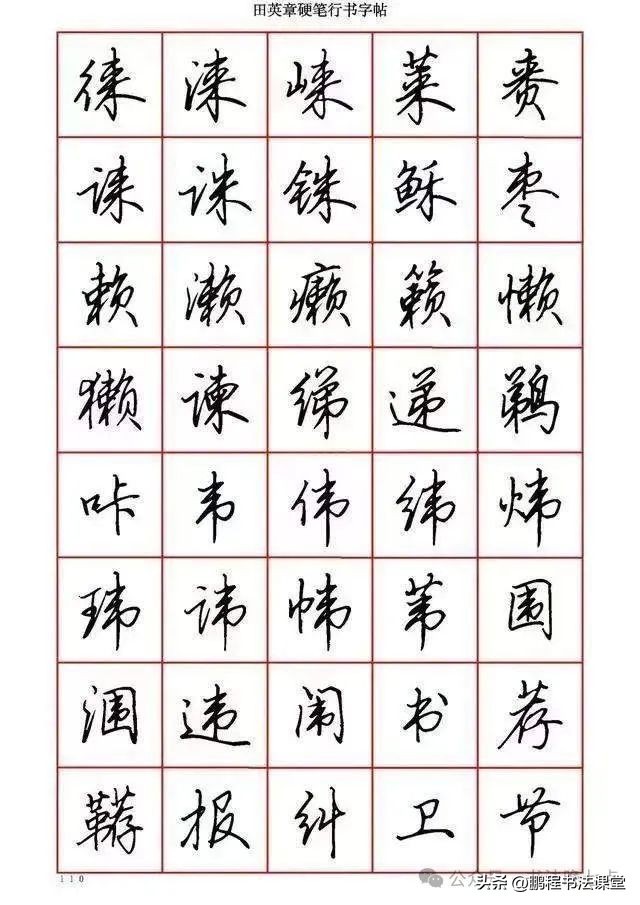 田英章硬笔行书字帖
徕 涞 崃 莱 赉
诔 诛 铢 稣 枣
赖 濑 癞 籁 懒
獭 谏 绨 递 鹈
咔 韦 伟 纬 炜
玮 讳 帏 苇 围
涠 违 闱 书 荐
鞯 报 纠 卫 节
110
头条@鹏程书法课堂